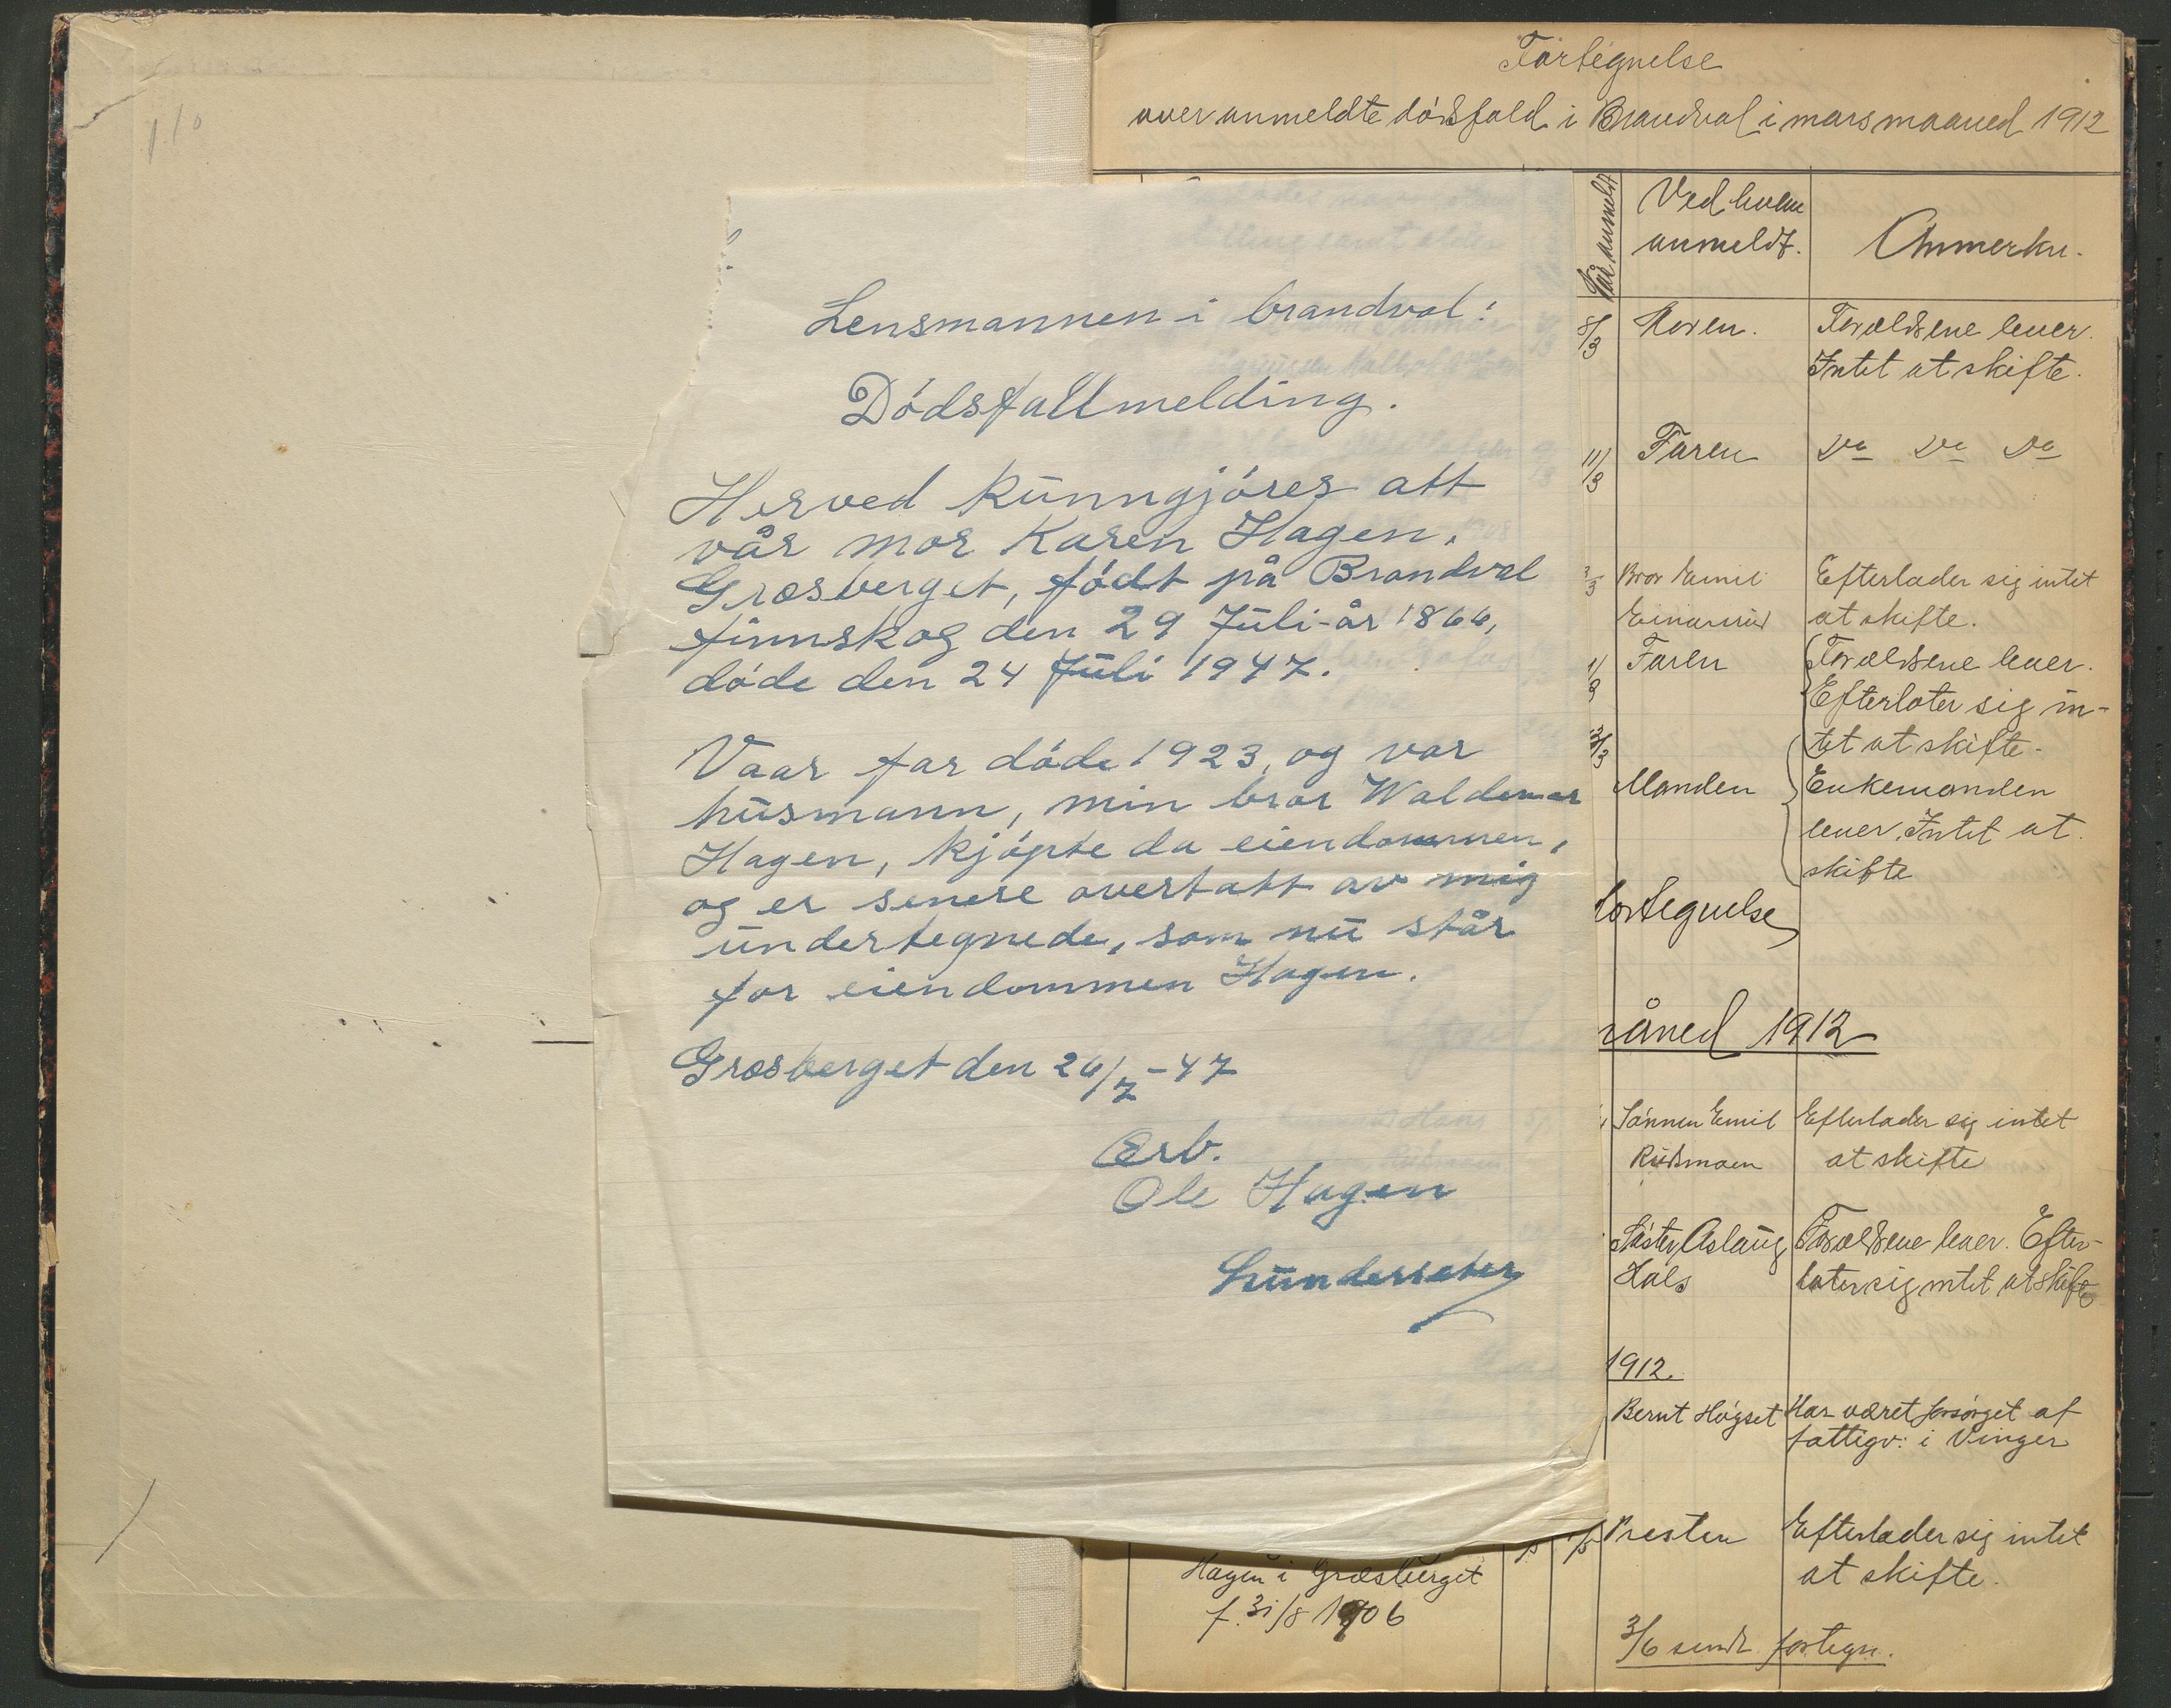 Lensmannen i brandval!
Dódsfallmelding.
Herved kunngjóres att
vår mor Karen Hagen,
Græsberget, fódt på Brandval
finnskog den 29 Juli-år 1866,
dóde den 24 Juli 1947.
Vaar far dóde 1923, og var
husmann, min bror Waldemar
Hagen, kjópte da eiendommen,
og er senere overtatt av mig
undertegnede, som nu står
for eiendommen Hagen.
Græsberget den 26/7-47
Ærb.
Ole Hagen
Lundersæter
Fortegnelse
over anmeldte dódsfald i Brandval i mars maaned 1912
Når anmeldt
Ved hvem anmeldt.
Anmerkn.
8/3 Moren. Forældrene lever.
Intet at skifte.
11/3 Faren Do Do Do
Bror Emil Efterlader sig intet
Einarsrud at skifte.
Faren Forældrene lever.
Efterlater sig in-
tet at skifte.
Manden Enkemanden
lever. Intet at
skifte
fortegnelse
måned 1912
Sónnen Emil Efterlader sig intet
Rudsmoen at skifte
Sóster Aslaug Forældrene lever. Efter-
Hóls later sig intet at skifte
1912.
Bernt Hógset Har været forsórget af
fattigv: i Vinger
Presten Efterlader sig intet
at skifte.
Hagen i Græsberget
f. 31/8 1906
3/6 sendt fortegn.